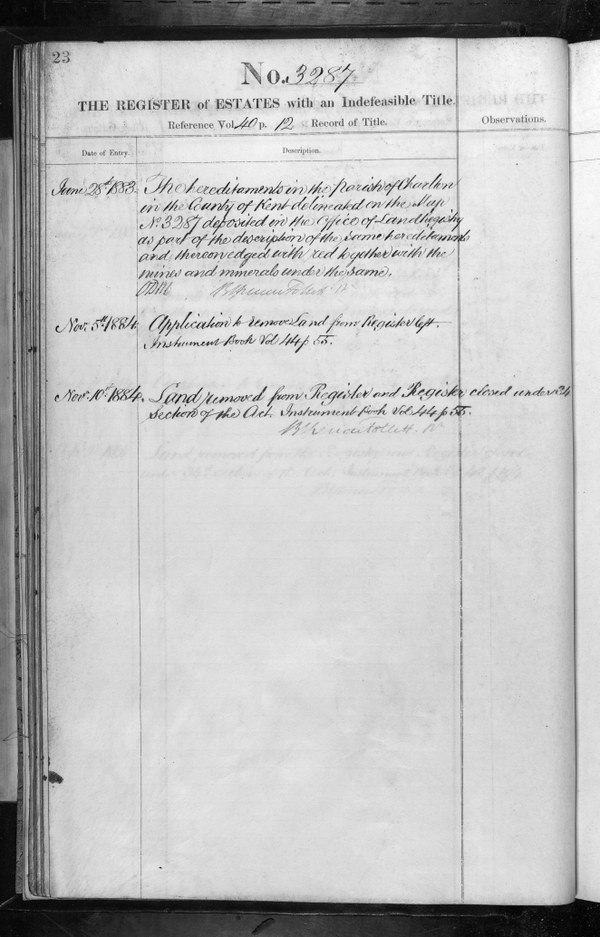 23
No. 3287
THE REGISTER of ESTATES with an Indefeasible Title.
Reference Vol. 40 p. 12 Record of Title.
Observations.
Date of Entry.
Description.
June 28th 1883.
The hereditaments in the Parish of Charlton
in the County of Kent delineated on the Map
No 3287 deposited in the Office of Land Registry
as part of the description of the same hereditaments
and thereon edged with red together with the
mines and minerals under the same.
Nov. 5th 1884.
Application to remove Land from Register left.
Instrument Book Vol 44 p 55.
Nov. 10th 1884.
Land removed from Register and Register closed under 24
Section of the Act. Instrument Book Vol 44 p 55.